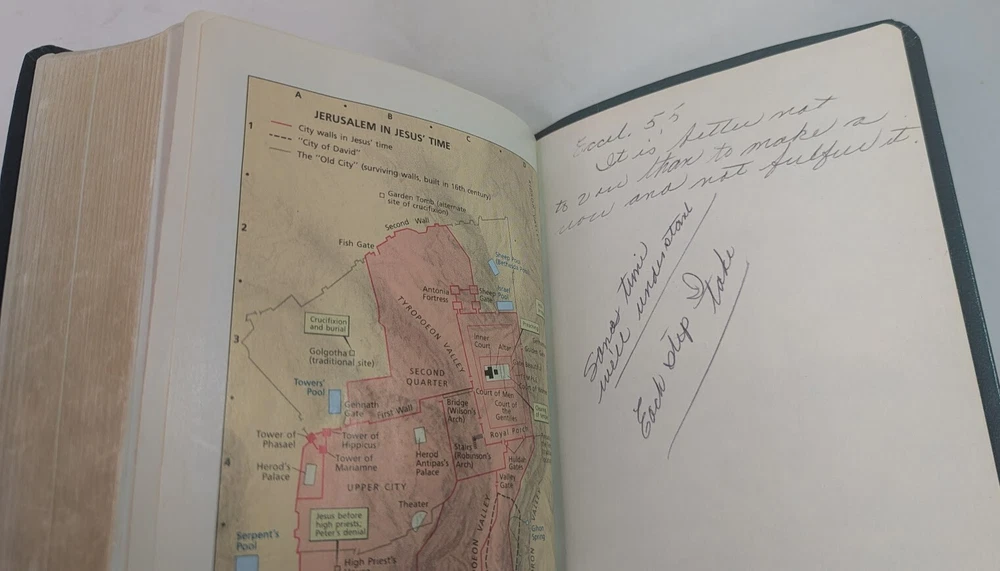 A
B
C
D
1
2
3
4
JERUSALEM IN JESUS' TIME
City walls in Jesus' time
"City of David"
The "Old City" (surviving walls, built in 16th century)
Garden Tomb (alternate
site of crucifixion)
Second Wall
Fish Gate
Sheep Pool
Israel
Pool
Antonia
Fortress
Sheep
Gate
TYROPOEON VALLEY
Crucifixion
and burial
Inner
Court
Altar
Golgotha
(traditional site)
SECOND
QUARTER
Court of Men
Court of
the
Gentiles
Towers'
Pool
Gennath
Gate
First Wall
Bridge
(Wilson's
Arch)
Royal Porch
Tower of
Phasael
Tower of
Hippicus
Tower of
Mariamne
Stairs
(Robinson's
Arch)
Herod
Antipas's
Palace
Huldah
Gates
Herod's
Palace
Valley
Gate
UPPER CITY
Theater
Jesus before
high priests;
Peter's denial
Gihon
Spring
VALLEY
Serpent's
Pool
High Priest's
Eccel. 5:5
It is better not
to vow than to make a
vow and not fulfull it.
time
will understand
Each step I take